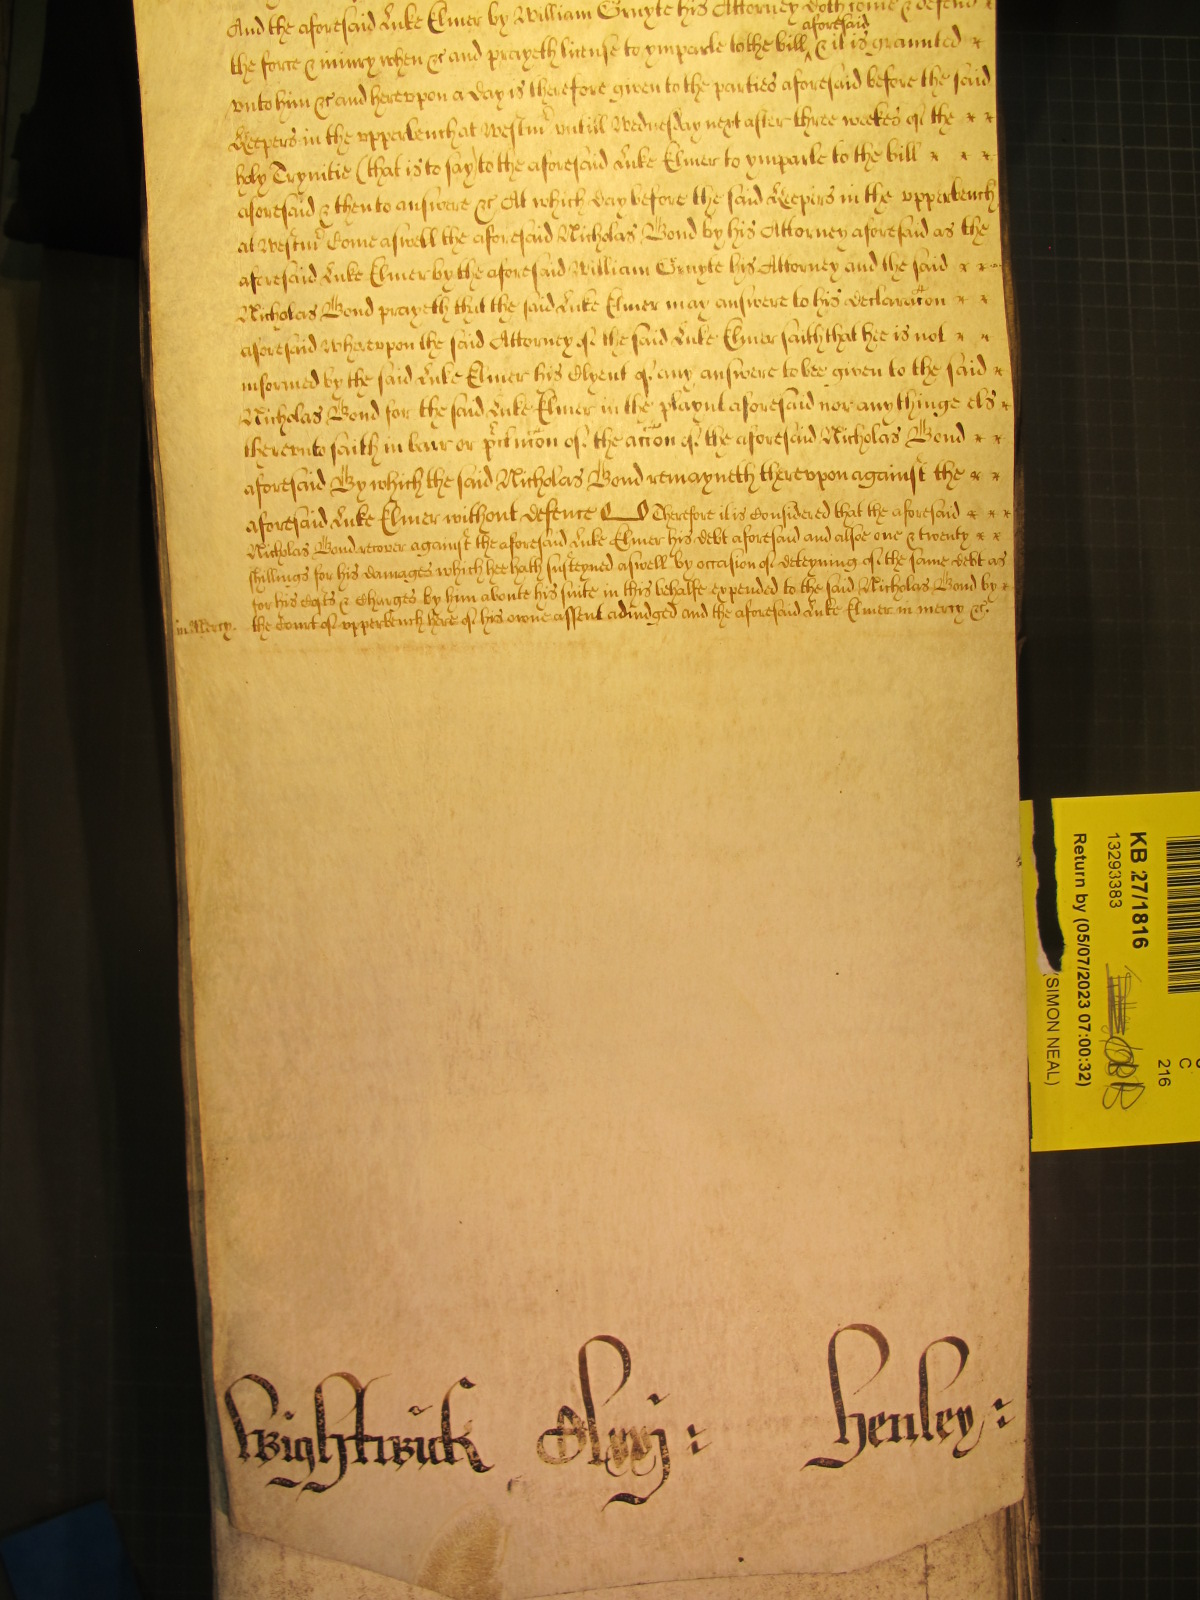 And the aforesaid Luke Elmer by William Gruyte his Attorney doth come & defend
the force & iniury when &c and prayeth license to ymparle to the bill aforesaid & it is graunted
vnto him &c and herevpon a day is therefore given to the parties aforesaid before the said
Keepers in the vpperbench at Westmr vntill Wednesday next after three weekes of the
holy Trynitie (that is to say) to the aforesaid Luke Elmer to ymparle to the bill
aforesaid & then to answere &c At which day before the said Keepers in the vpperbench
at Westmr Come aswell the aforesaid Nicholas Bond by his Attorney aforesaid as the
aforesaid Luke Elmer by the aforesaid William Gruyte his Attorney and the said
Nicholas Bond prayeth that the said Luke Elmer may answere to his declaracon
aforesaid wherevpon the said Attorney of the said Luke Elmer saith that hee is not
informed by the said Luke Elmer his Clyent of any answere to bee given to the said
Nicholas Bond for the said Luke Elmer in the playnt aforesaid nor any thinge els
therevnto saith in barr or of the accon of the aforesaid Nicholas Bond
aforesaid By which the said Nicholas Bond remayneth therevpon against the
aforesaid Luke Elmer without defence Therefore it is Considered that the aforesaid
Nicholas Bond recover against the aforesaid Luke Elmer his debt aforesaid and alsoe one & twenty
shillings for his damages which hee hath susteyned aswell by occasion of deteyning of the same debt as
for his Costs & Charges by him aboute his suite in this behalfe expended to the said Nicholas Bond by
in Mercy. the Court of vpperbench here of his owne assent adiudged and the aforesaid Luke Elmer in mercy &c.
Wightwick Henley:
KB 27/1816
13293383
Return by (05/07/2023 07:00:32)
(SIMON NEAL)
C
216